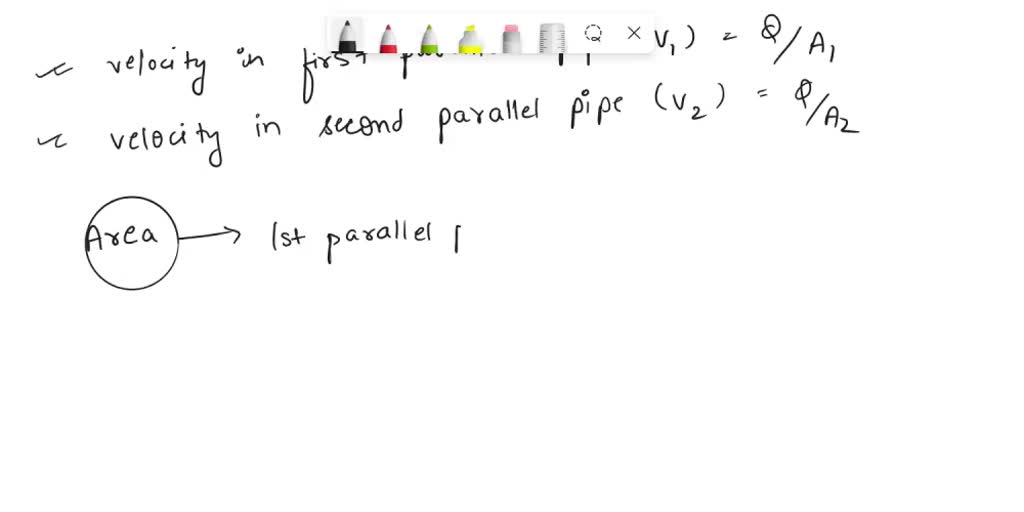 velocity in first V₁) = Q/A₁
velocity in second parallel pipe (V₂) = Q/A₂
Area → 1st parallel p